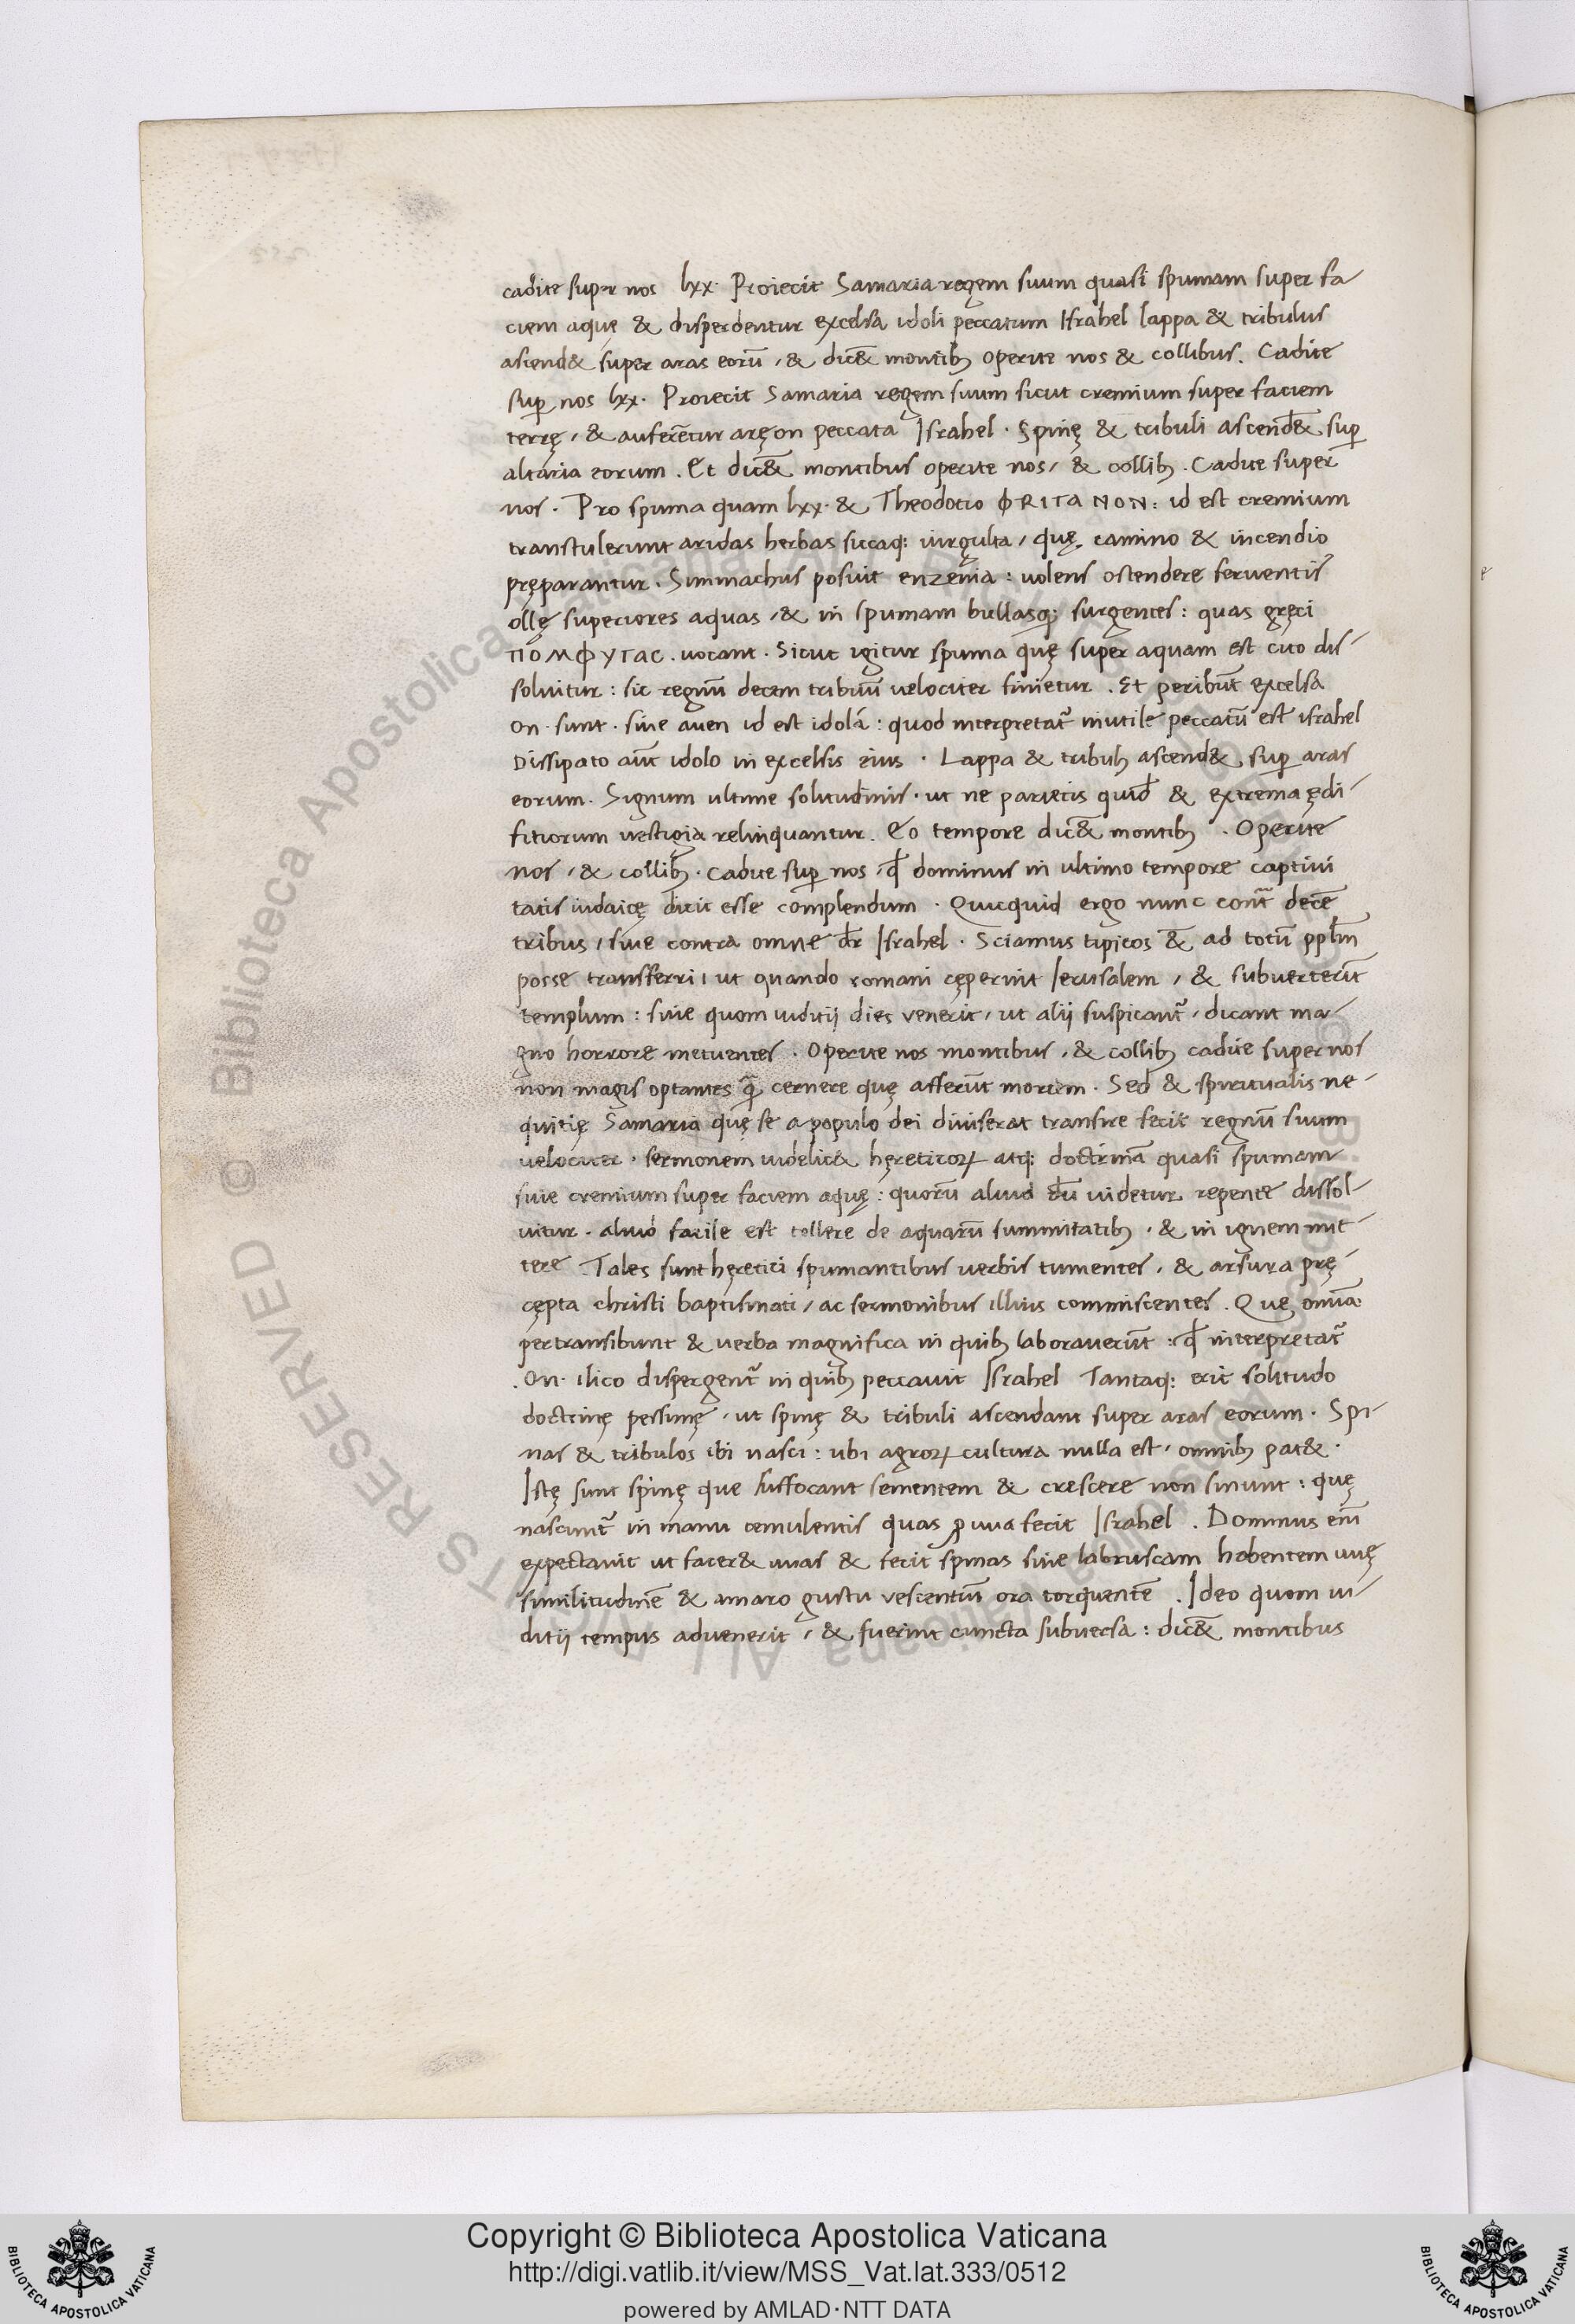 cadite super nos lxx. Proiecit Samaria regem suum quasi spumam super fa
ciem aquę & disperdentur excelsa idoli peccatum Israhel lappa & tribulus
ascend& super aras eorū, & dic&̄ montib; operite nos & collibus. Cadite
suꝑ nos lxx. Proiecit Samaria regem suum sicut cremium super faciem
terrę, & auferētur aręon peccata Israhel. Spinę & tribuli ascend&̄ suꝑ
altaria eorum. Et dic&̄ montibus operite nos, & collib;. Cadite super
nos. Pro spuma quam lxx. & Theodotio ΦRITANON: id est cremium
transtulerunt aridas herbas siccaq: uirgulta, quę camino & incendio
pręparantur. Simmachus posuit enzenia: uolens ostendere feruentis
ollę superiores aquas, & in spumam bullasq; surgentes: quas gręci
ΠΟΜΦΥΓΑC. uocant. Sicut igitur spuma quę super aquam est cito dis-
soluitur: sic regnū decem tribuū velociter finietur. Et peribūt excelsa
on. sunt. siue auen id est idola: quod interpretat̄ inutile peccatū est israhel
Dissipato aūt idolo in excelsis eius. Lappa & tribul; ascend&, suꝑ aras
eorum. Signum ultime solitudinis. ut ne parietis quid̄ & extrema ędi-
fitiorum uestigia relinquantur. Eo tempore dic&̄ montib;. Operite
nos, & collib;. cadite suꝑ nos, qd̄ dominus in ultimo tempore captiui
tatis iudaicę dicit esse complendum. Quicquid ergo nunc cont̄ decē
tribus, siue contra omne dr̄ Israhel. Sciamus tipicos &̄ ad totū ppl̄m
posse transferri, ut quando romani cęperint Ierusalem, & subuerterīt
templum: siue quom iuditij dies venerit, ut alij suspicant̄, dicant ma-
gno horrore metuentes. Operite nos montibus, & collib; cadite super nos
non magis optantes q̄ cernere quę afferūt mortem. Sed & spiritualis ne-
quitię Samaria quę se a populo dei diuiserat transire fecit regnū suum
uelociter. sermonem uidelic& hęreticoꝝ atq: doctrinā quasi spumam
siue cremium super faciem aquę: quorū aliud dū uidetur repente dissol-
uitur. aliud facile est tollere de aquarū summitatib;. & in ignem mit-
tere. Tales sunt hęretici spumantibus uerbis tumentes, & arsura prę
cępta christi baptismati, ac sermonibus illius commiscentes. Quę omīa
pertransibunt & uerba magnifica in quib; laborauerūt: qd̄ interpretat̄
.On. ilico dispergent̄ in quib; peccauit Israhel Tantaq: erit solitudo
doctrinę pessimę, ut spinę & tribuli ascendant super aras eorum. Spi-
nas & tribulos ibi nasci: ubi agroꝝ cultura nulla est, omnib; pat&.
Istę sunt spinę que suffocant sementem & crescere non sinunt: quę
nascunt̄ in manu temulentis quas ꝓ uua fecit Israhel. Dominus eīn
expectauit ut facer& uuas & fecit spinas siue labruscam habentem uuę
similitudinē & amaro gustu vescentiū ora torquentē. Ideo quom iu-
ditij tempus aduenerit, & fuerint cuncta subuersa: dic&̄ montibus
Copyright © Biblioteca Apostolica Vaticana
http://digi.vatlib.it/view/MSS_Vat.lat.333/0512
powered by AMLAD·NTT DATA